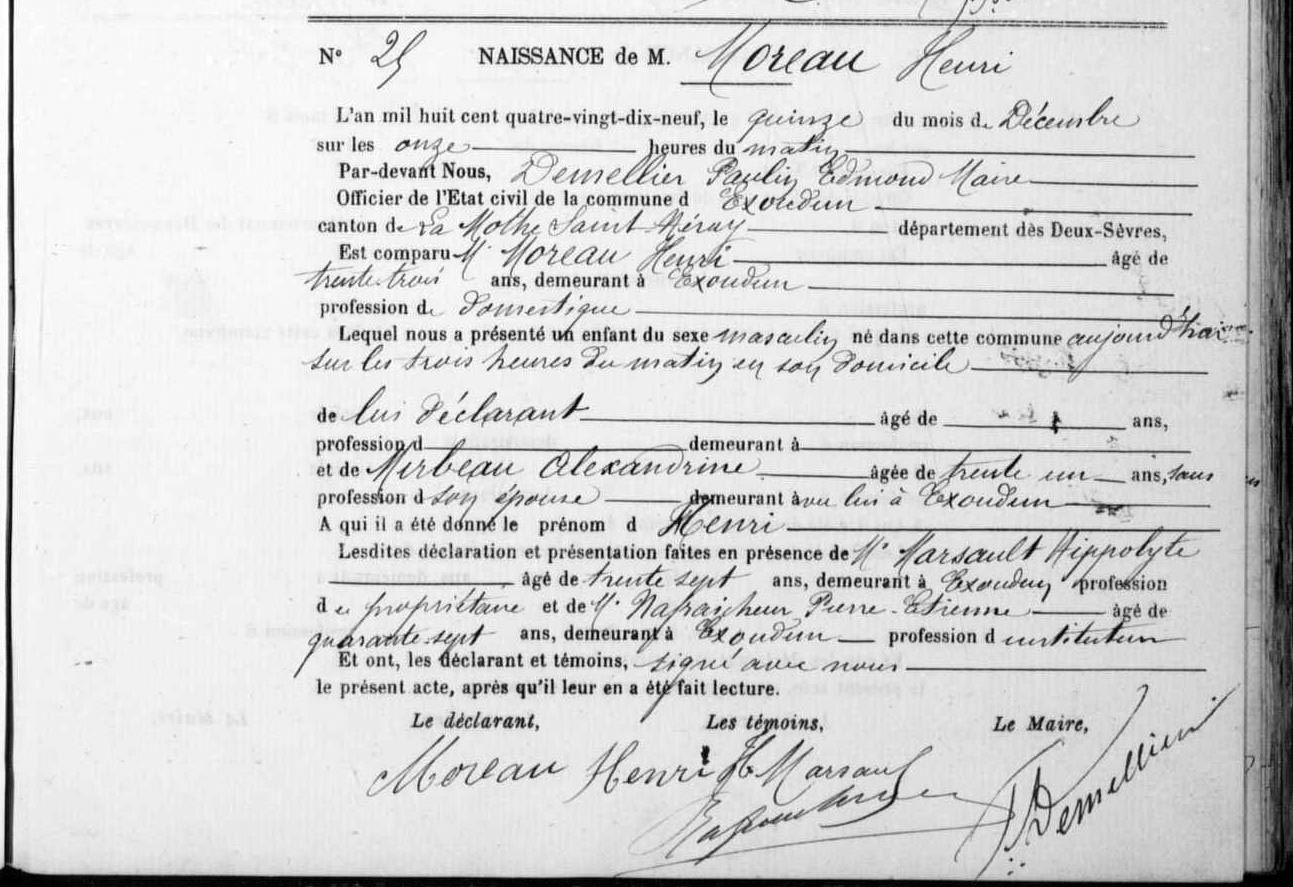 N° 25 NAISSANCE de M. Moreau Henri
L'an mil huit cent quatre-vingt-dix-neuf, le quinze du mois de Décembre
sur les onze heures du matin
Par-devant Nous, Demellier Paulin Edmond Maire
Officier de l'Etat civil de la commune d Exoudun
canton de La Mothe Saint Héray département des Deux-Sèvres,
Est comparu M. Moreau Henri âgé de
trente-trois ans, demeurant à Exoudun
profession de domestique
Lequel nous a présenté un enfant du sexe masculin né dans cette commune aujourd'hui
sur les trois heures du matin en son domicile
de lui déclarant âgé de ans,
profession d demeurant à
et de Mirbeau Alexandrine âgée de trente un ans, sans
profession d son épouse demeurant avec lui à Exoudun
A qui il a été donné le prénom d Henri
Lesdites déclaration et présentation faites en présence de Mr Marsault Hippolyte
âgé de trente sept ans, demeurant à Exoudun profession
de propriétaire et de Mr Nafraicheur Pierre-Etienne âgé de
quarante-sept ans, demeurant à Exoudun profession d instituteur
Et ont, les déclarant et témoins, signé avec nous
le présent acte, après qu'il leur en a été fait lecture.
Le déclarant, Les témoins, Le Maire,
Moreau Henri H Marsault
Demellier